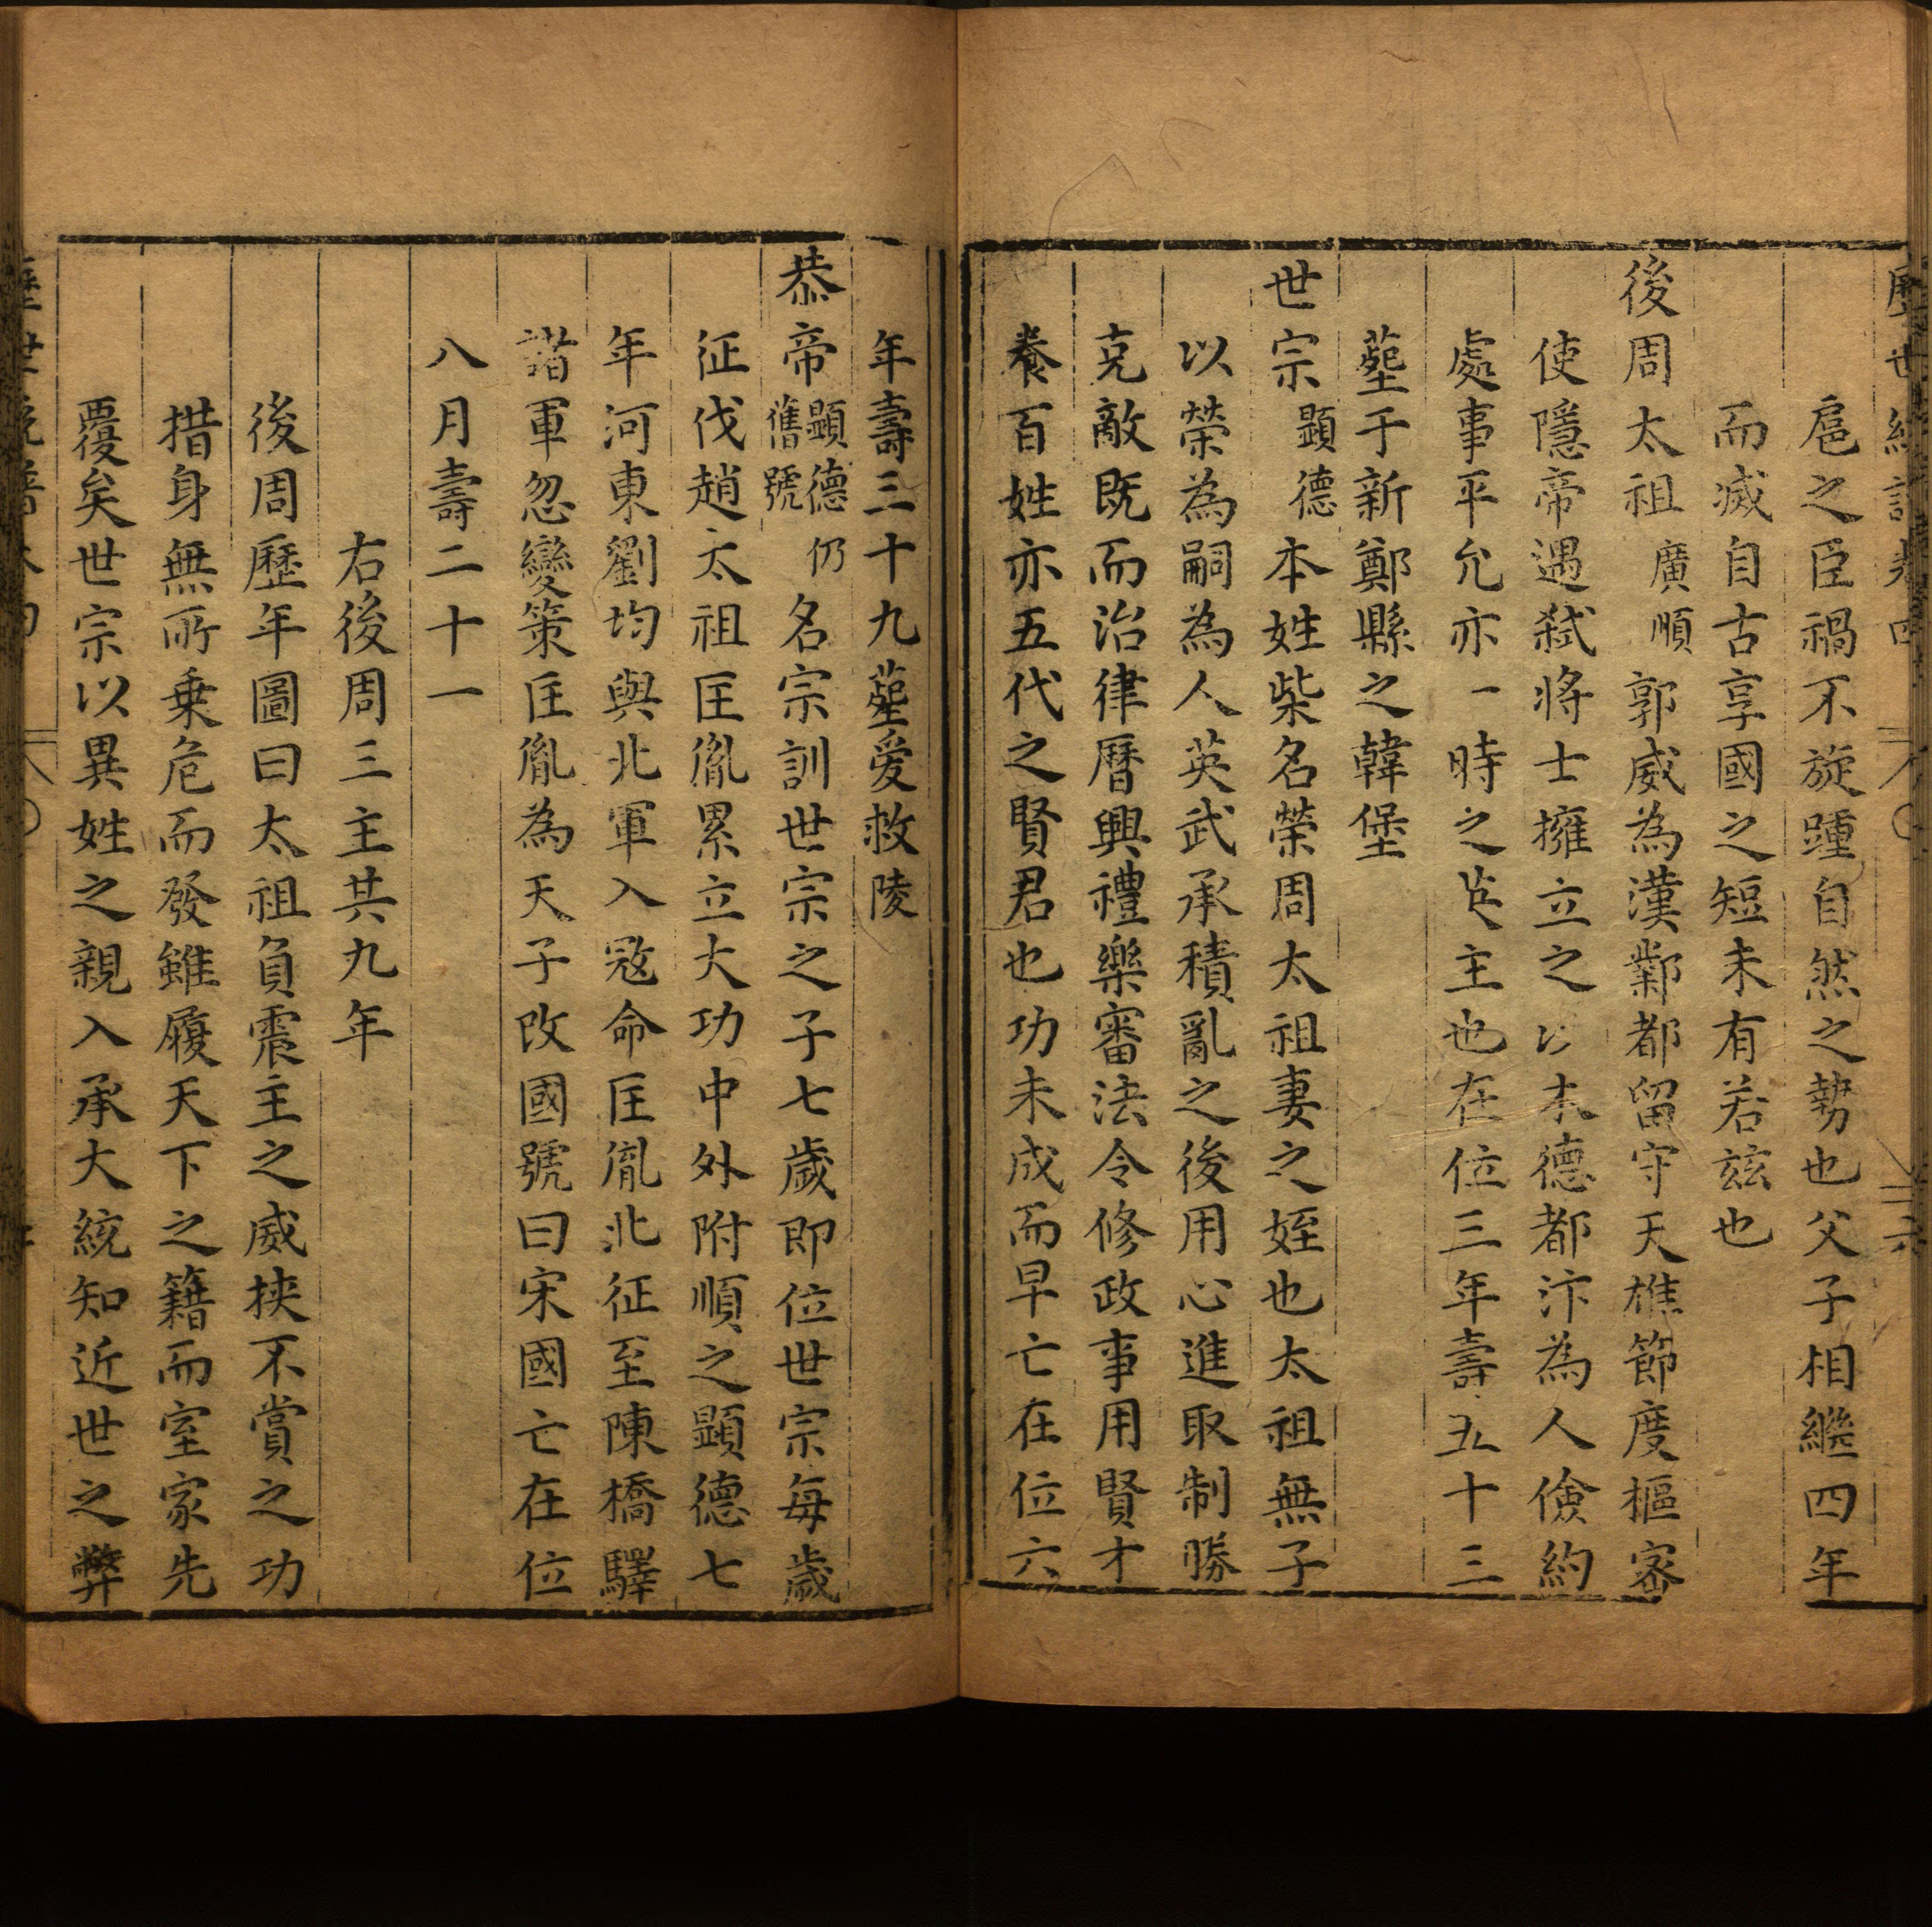 扈之臣禍不旋踵自然之勢也父子相繼四年
而滅自古享國之短未有若兹也
後周太祖廣順郭威為漢鄴都留守天雄節度樞密
使隱帝遇弑將士擁立之以木德都汴為人儉約
處事平允亦一時之英主也在位三年壽五十三
塟于新鄭縣之韓堡
世宗顯德本姓柴名榮周太祖妻之姪也太祖無子
以榮為嗣為人英武承積亂之後用心進取制勝
克敵既而治律曆興禮樂審法令修政事用賢才
養百姓亦五代之賢君也功未成而早亡在位六
年壽三十九塟爱救陵
恭帝顯德仍舊號名宗訓世宗之子七歲即位世宗每歲
征伐趙太祖匡胤累立大功中外附順之顯德七
年河東劉均與北軍入冦命匡胤北征至陳橋驛
諸軍忽變策匡胤為天子改國號曰宋國亡在位
八月壽二十一
右後周三主共九年
後周歷年圖曰太祖負震主之威挾不賞之功
措身無所乗危而發雖履天下之籍而室家先
覆矣世宗以異姓之親入承大統知近世之弊